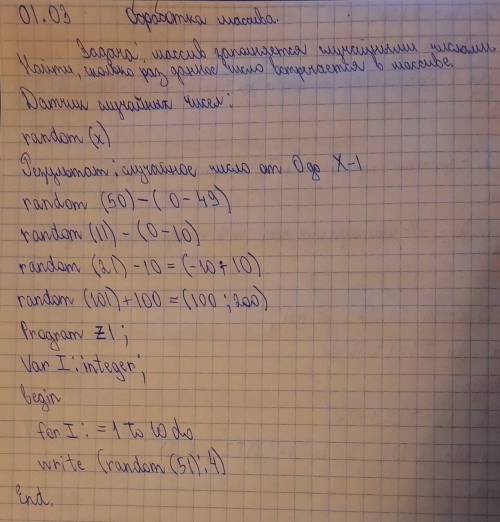 01.03 Обработка массива.
Задача: массив заполняется случайными числами.
Найти, сколько раз данное число встречается в массиве.
Датчик случайных чисел:
random (x)
Результат: случайное число от 0 до X-1
random (50) - ( 0 - 49)
random (11) - (0-10)
random (21) - 10 = (-10 ÷ 10)
random (101) + 100 = (100 ; 200)
Program Z1;
Var I: integer;
begin
for I: = 1 To 10 do
write (random (51): 4)
End.